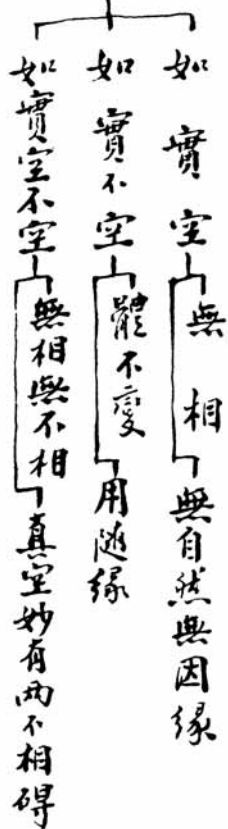 如實空
無相
無自然無因緣
如實不空
體不變
用隨緣
如實空不空
無相無不相
真空妙有兩不相碍